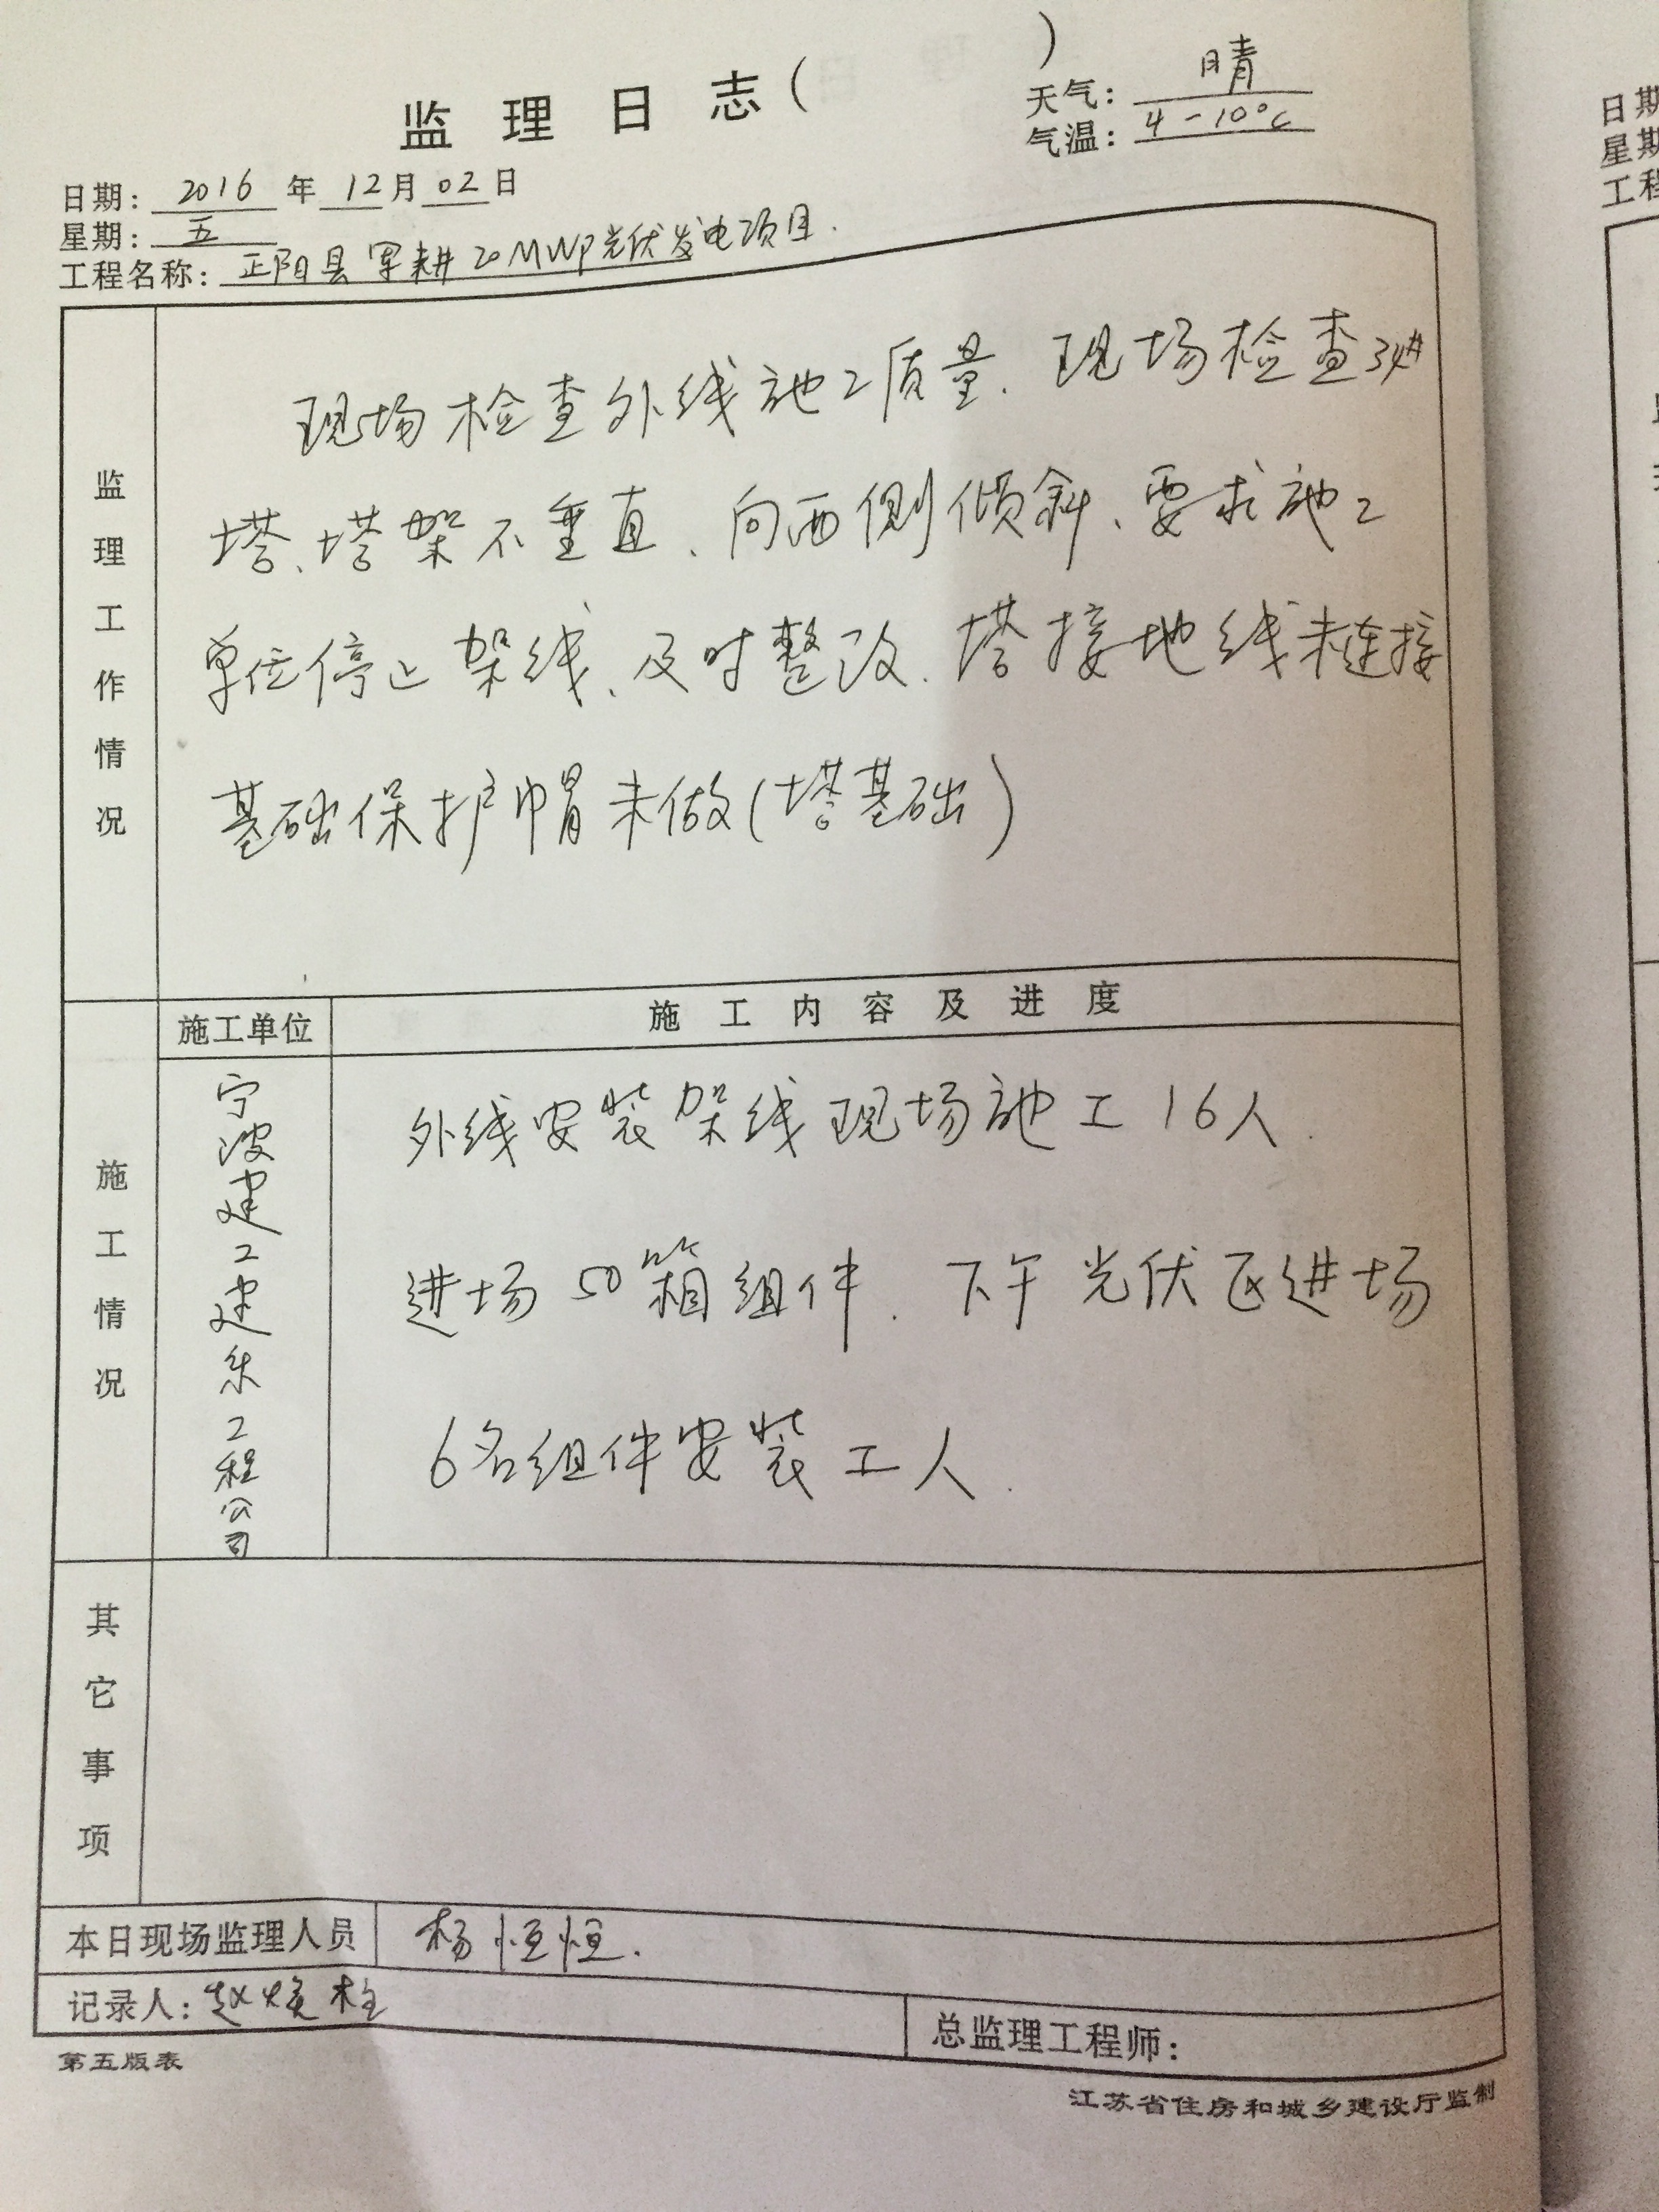 监理日志(        )
天气: 晴
气温: 4-10°C
日期: 2016 年 12 月 02 日
星期: 五
工程名称: 正阳县军耕20MWP光伏发电项目.
监理工作情况
现场检查外线施工质量. 现场检查34#
塔、塔架不垂直、向西侧倾斜、要求施工
单位停止架线、及时整改. 塔接地线未连接
基础保护帽未做(塔基础)
施工情况
施工单位
施工内容及进度
宁波建工建乐工程公司
外线安装架线现场施工16人.
进场50箱组件. 下午光伏区进场
6名组件安装工人.
其它事项
本日现场监理人员 杨恒恒.
记录人: 赵焕柱
总监理工程师:
第五版表
江苏省住房和城乡建设厅监制
日期
星期
工程